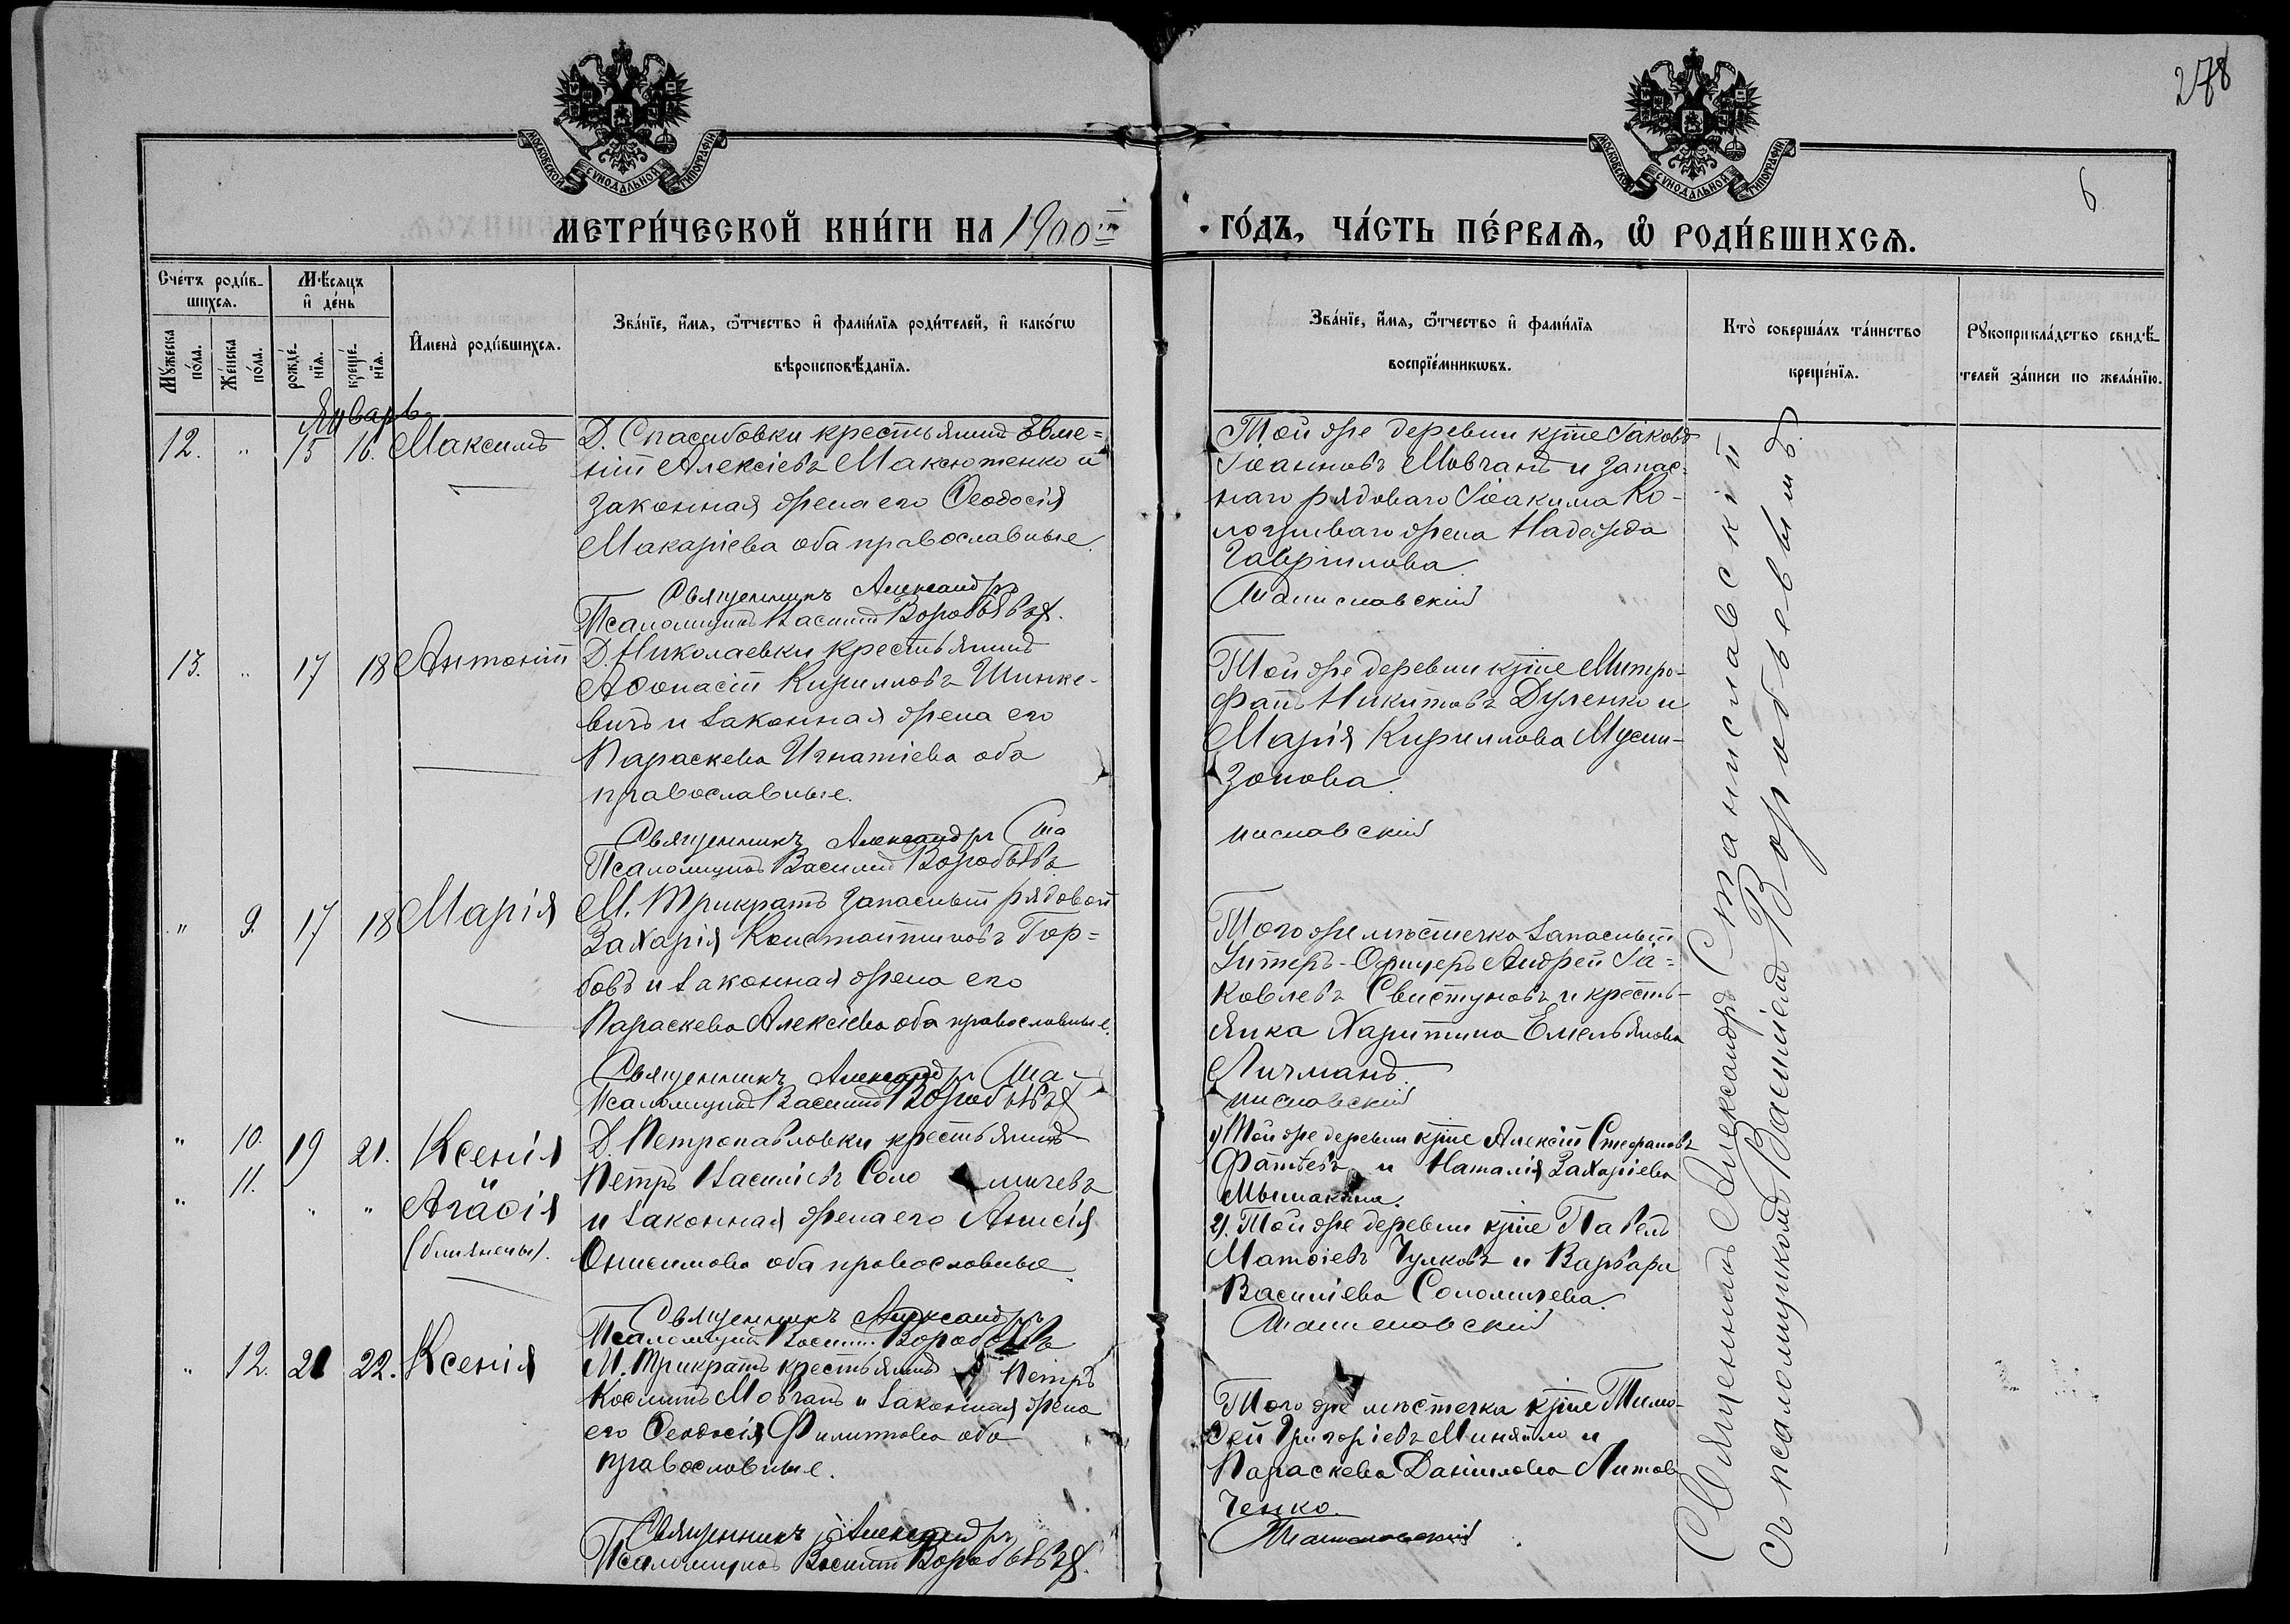 278
6
МОСКОВСКОЙ СѴНОДАЛЬНОЙ ТИПОГРАФІИ
МОСКОВСКОЙ СѴНОДАЛЬНОЙ ТИПОГРАФІИ
МЕТРИ́ЧЕСКОЙ КНИ́ГИ НА 1900й
ГО́ДЪ, ЧА́СТЬ ПЕ́РВАЯ, Ѡ РОДИ́ВШИХСЯ.
Сче́тъ роди́в-
шихся.
Мѣ́сяцъ
и҆ де́нь
Мꙋ́жеска
по́ла.
Же́нска
по́ла.
рожде́-
нїя.
креще́-
нїя.
И҆мена̀ роди́вшихся.
Зва́нїе, и҆́мя, ѻ҆́тчество и҆ фами́лїя роди́телей, и҆ како́гѡ
вѣроисповѣ́данїя.
Зва́нїе, и҆́мя, ѻ҆́тчество и҆ фами́лїя
воспрїе́мникѡвъ.
Кто̀ соверша́лъ та́инство
креще́нїя.
Рꙋкоприкла́дство свидѣ́-
телей за́писи по жела́нїю.
Январь
12. " 15 16. Максимъ
Д. Спасибовки крестьянинъ Евме=
ній Алексіевъ Максютенко и
законная жена его Ѳеодосія
Макаріева оба православные.
Священникъ Александръ
Псаломщикъ Василій Воробьевъ.
Той же деревни кр҃не Іаковъ
Іоанновъ Мовчанъ и запас-
наго рядоваго Іоакима Ко-
жена Надежда
Гавріилова.
Станиславскій
13. " 17 18 Антоній
Д. Николаевки крестьянинъ
Аѳонасій Кирилловъ Шинке-
вичъ и законная жена его
Параскева Игнатіева оба
православные.
Священникъ Александръ Ста
Псаломщикъ Василій Воробьевъ
Той же деревни кр҃не Митро-
фанъ Никитовъ Дуленко и
Марія Кириллова
зонова.
ниславскій
" 9. 17 18 Марія
М. Трикратъ запасный рядовой
Захарія Константиновъ Гор=
бовъ и законная жена его
Параскева Алексіева оба православные.
Священникъ Александръ Ста-
Псаломщикъ Василій Воробьевъ
Того же мѣстечка запасный
Унтеръ-Офицеръ Андрей Іа=
ковлевъ Свистуновъ и кресть-
янка Харитина Емельянова
Личманъ.
ниславскій
" 10. 19 21. Ксенія
" 11. " " Агаѳія
(близнецы).
Д. Петропавловки крестьянинъ
Петръ Василіевъ Соло мичевъ
и законная жена его Анисія
Онисимова оба православные.
Священникъ Александръ
Псаломщикъ Василій Воробьевъ
1) Той же деревни кр҃не Алексій Стефановъ
Фатѣевъ и Наталія Захаріева
2). Той же деревни кр҃не Павелъ
Матѳіевъ Чулковъ и Варвара
Василіева Соломичева.
Станиславскій
" 12. 21 22. Ксенія
М. Трикратъ крестьянинъ Петръ
Косминъ Мовчанъ и законная жена
его Ѳеодосія Филиппова оба
православные.
Священникъ Александръ
Псаломщикъ Василій Воробьевъ.
Того же мѣстечка кр҃не Тимо-
ѳей Григоріевъ Миняйло и
Параскева Даніилова Литов
ченко.
Станиславскій
Священникъ Александръ Станиславскій
съ псаломщикомъ Василіемъ Воробьевымъ.